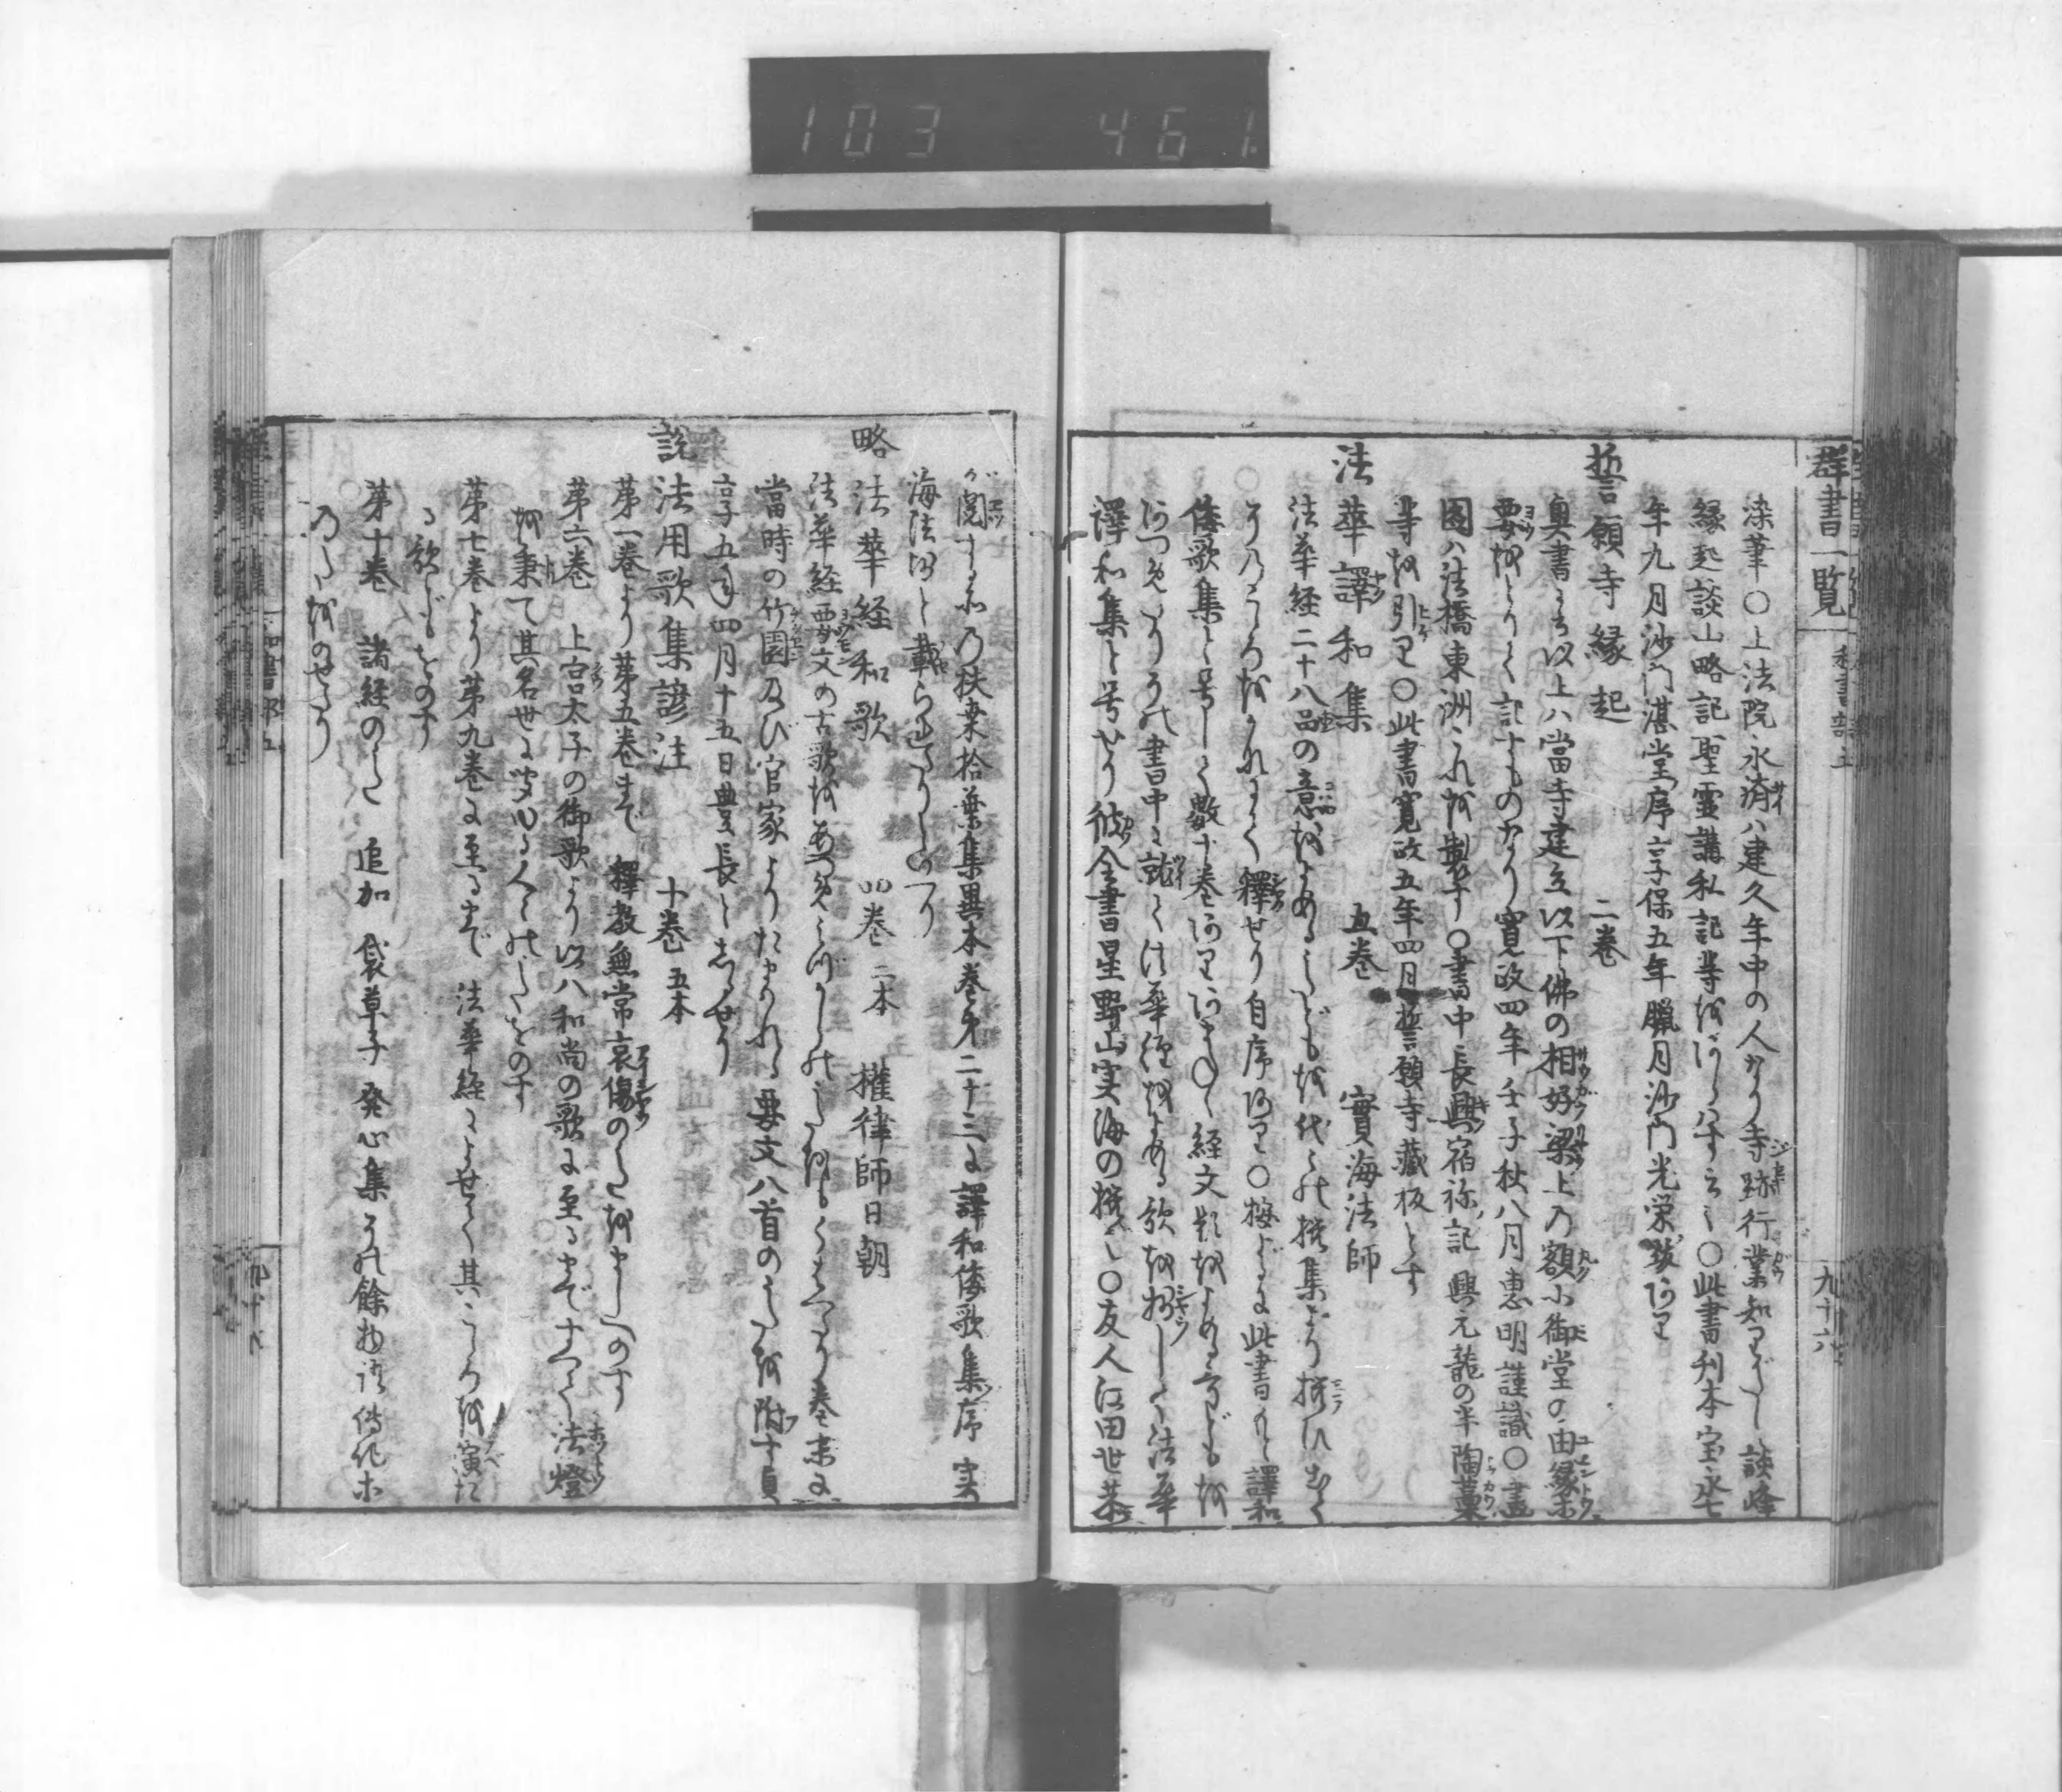 103 461.
群書一覧 和書部五 九十六
染筆〇上法院永済ハ建久年中の人なり寺跡行業知りがたし談峰
縁起談山略記聖霊講私記等を
〇此書刊本宝永七
年九月沙門湛堂序享保五年臘月沙門光栄跋あり
誓願寺縁起 二巻
奥書に以上ハ当寺建立以下佛の相好梁上の額小御堂の由縁等
要をとりて記すものなり寛政四年壬子秋八月恵明謹識〇畫
圖ハ法橋東洲これを製す〇書中長興宿祢記興元龍の半陶藁
等を引り〇此書寛政五年四月誓願寺蔵板とす
法華譯和集 五巻 實海法師
法華経二十八品の意をよめるうたどもを代々の撰集より撰ひ出て
そのこゝろをのれまて釋せり自序あり〇按ずるに此書もと譯和
倭歌集と号して数十巻あり
経文題をよめる哥どもを
あつめたりその書中に就て法華經をよめる歌を抄して法華
譯和集と号せり彼全書星野山実海の撰也〇友人江田世恭
が閲する所の扶桒拾葉集異本巻第二十三に譯和倭歌集序 実
海法師と載られたりといへり
略法華経和歌 一巻 二本 權律師日朝
法華経要文の古歌をあつめ
巻末に
當時の竹園及び官家よりたまわれる要文八首のうたを附す貞
享五年四月十五日豊長としるせり
説法用歌集諺注 十巻 五本
第一巻より第五巻まで 釋教無常哀傷のうたをまじへのす
第六巻 上宮太子の御歌より以八和尚の歌に至るまですべて法燈
を秉て其名世に聞ゆる人々のうたをのす
第七巻より第九巻に至るまで 法華経によせて其こゝろを演た
る歌どもをのす
第十巻 諸経のうた 追加 袋草子 発心集 その餘物語傳記等
のうたをのせたり